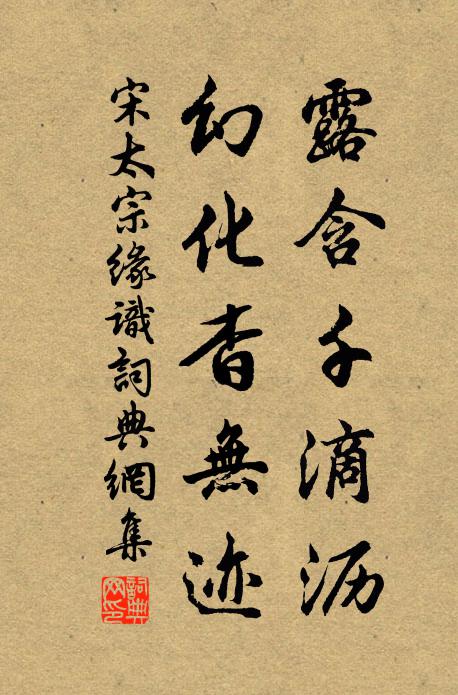 露含千滴沥
幻化杳無迹
宋太宗缘識詞典網集
詞典網印